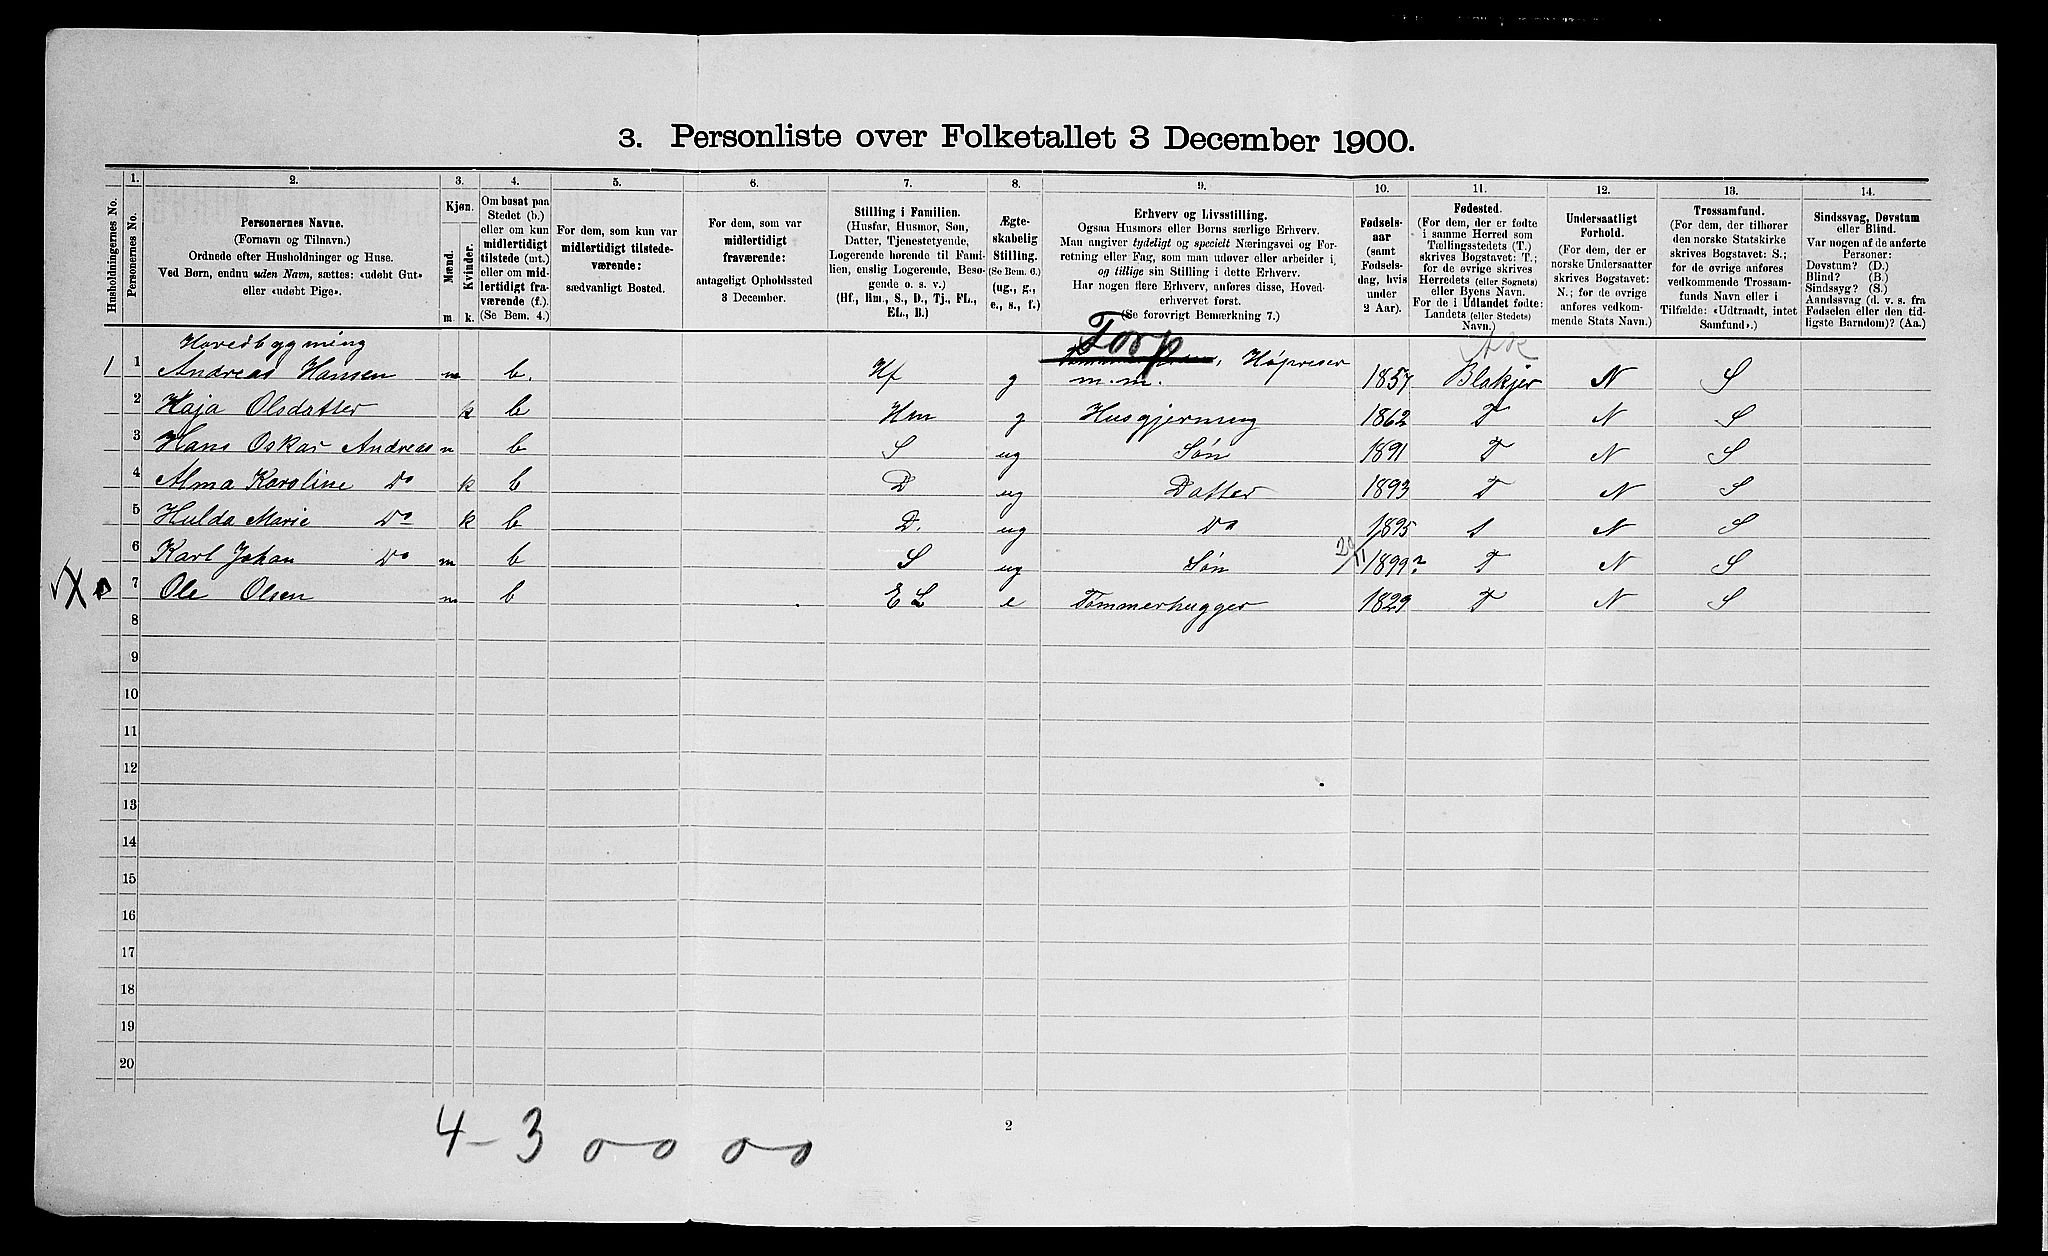 3. Personliste over Folketallet 3 December 1900.
1. 2. 3. 4. 5. 6. 7. 8. 9. 10. 11. 12. 13. 14.
Husholdningernes No.
Personernes No.
Personernes Navne.
(Fornavn og Tilnavn.)
Ordnede efter Husholdninger og Huse.
Ved Børn, endnu uden Navn, sættes: «udøbt Gut»
eller «udøbt Pige».
Kjøn.
Mænd.
Kvinder.
m. k.
Om bosat paa
Stedet (b.)
eller om kun
midlertidigt
tilstede (mt.)
eller om mid-
lertidigt fra-
værende (f.)
(Se Bem. 4.)
For dem, som kun var
midlertidigt tilstede-
værende:
sædvanligt Bosted.
For dem, som var
midlertidigt
fraværende:
antageligt Opholdssted
3 December.
Stilling i Familien.
(Husfar, Husmor, Søn,
Datter, Tjenestetyende,
Logerende hørende til Fami-
lien, enslig Logerende, Besø-
gende o. s. v.)
(Hf., Hm., S., D., Tj., FL.,
EL., B.)
Ægte-
skabelig
Stilling.
(Se Bem. 6.)
(ug., g.,
e., s., f.)
Erhverv og Livsstilling.
Ogsaa Husmors eller Børns særlige Erhverv.
Man angiver tydeligt og specielt Næringsvei og For-
retning eller Fag, som man udøver eller arbeider i,
og tillige sin Stilling i dette Erhverv.
Har nogen flere Erhverv, anføres disse, Hoved-
erhvervet først.
(Se forøvrigt Bemærkning 7.)
Fødsels-
aar
(samt
Fødsels-
dag, hvis
under
2 Aar).
Fødested.
(For dem, der er fødte
i samme Herred som
Tællingsstedets (T.)
skrives Bogstavet: T.;
for de øvrige skrives
Herredets (eller Sognets)
eller Byens Navn.
For de i Udlandet fødte:
Landets (eller Stedets)
Navn.)
Undersaatligt
Forhold.
(For dem, der er
norske Undersaatter
skrives Bogstavet:
N.; for de øvrige
anføres vedkom-
mende Stats Navn.)
Trossamfund.
(For dem, der tilhører
den norske Statskirke
skrives Bogstavet: S.;
for de øvrige anføres
vedkommende Trossam-
funds Navn eller i
Tilfælde: «Udtraadt, intet
Samfund».)
Sindssvag, Døvstum
eller Blind.
Var nogen af de anførte
Personer:
Døvstum? (D.)
Blind? (B.)
Sindssyg? (S.)
Aandssvag (d. v. s. fra
Fødselen eller den tid-
ligste Barndom)? (Aa.)
Hovedbygning Torp Ak
1 1 Andreas Hansen m b. Hf g Høpreser m.m. 1857 Blakjer N S
2 Kaja Olsdatter k b Hm g Husgjerning 1862 T N S
3 Hans Oskar Andreas m b S ug Søn 1891 T N S
4 Alma Karoline Do k b D ug Datter 1893 T N S
5 Hulda Marie Do k b D. ug Do 1895 T N S
6 Karl Johan Do m b S ug Søn 1899? T N S
X 7 Ole Olsen m b EL e Tømmerhugger 1829 T N S
8
9
10
11
12
13
14
15
16
17
18
19
20
4-3 0-0 0-0
2